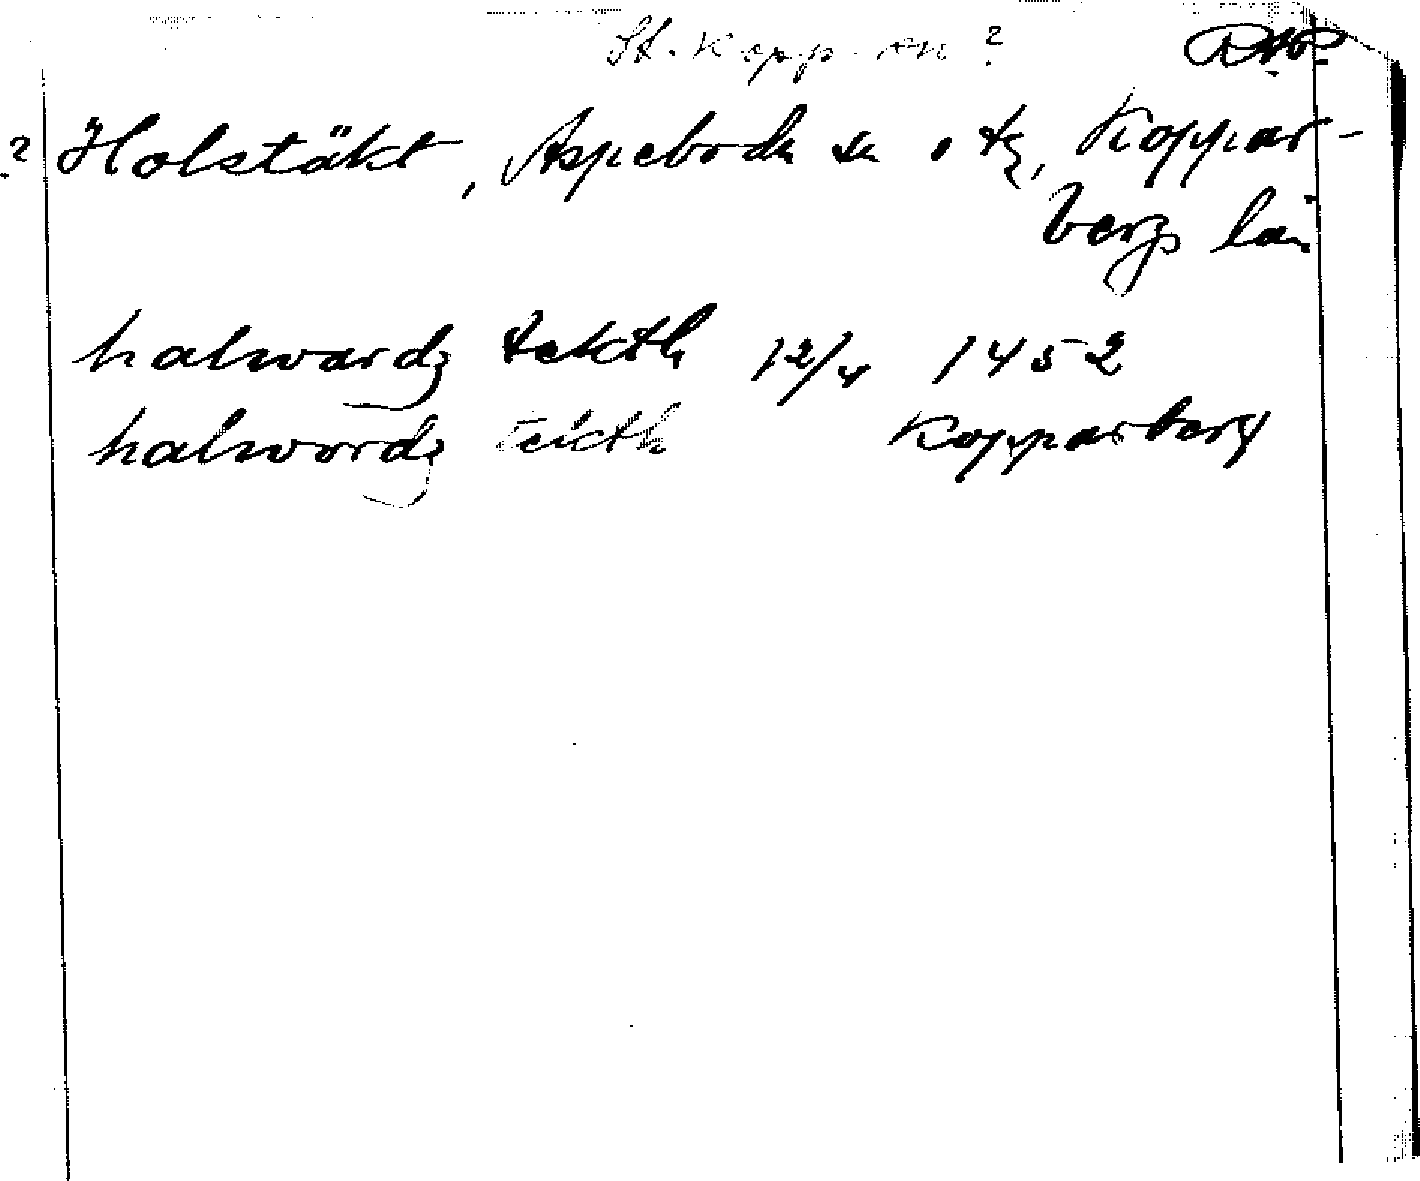 St. Kopp. sn ?
? Holstäkt, Aspeboda sn o tg, Koppar-
bergs län
halwardz tekth 12/4 1452
halwordz tekth Kopparberg